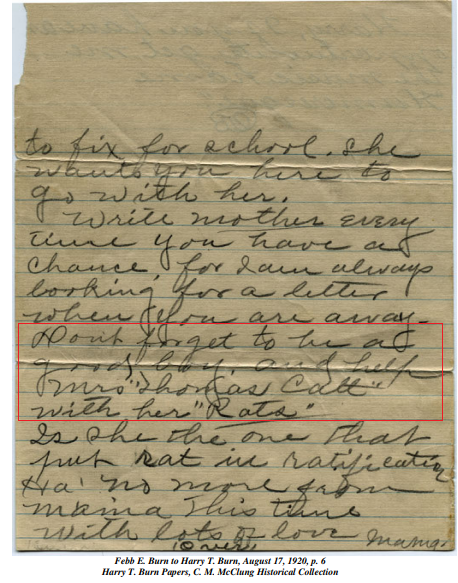 to fix for school. She
wants you here to
go with her.
Write mother every
time you have a
chance, for I am always
looking for a letter
when you are away.
Dont forget to be a
good boy, and help
Mrs "Thomas Catt"
with her "Rats"
Is she the one that
put rat in ratification
Ha! no more from
mama this time
With lots of love Mama.
(over)
Febb E. Burn to Harry T. Burn, August 17, 1920, p. 6
Harry T. Burn Papers, C. M. McClung Historical Collection